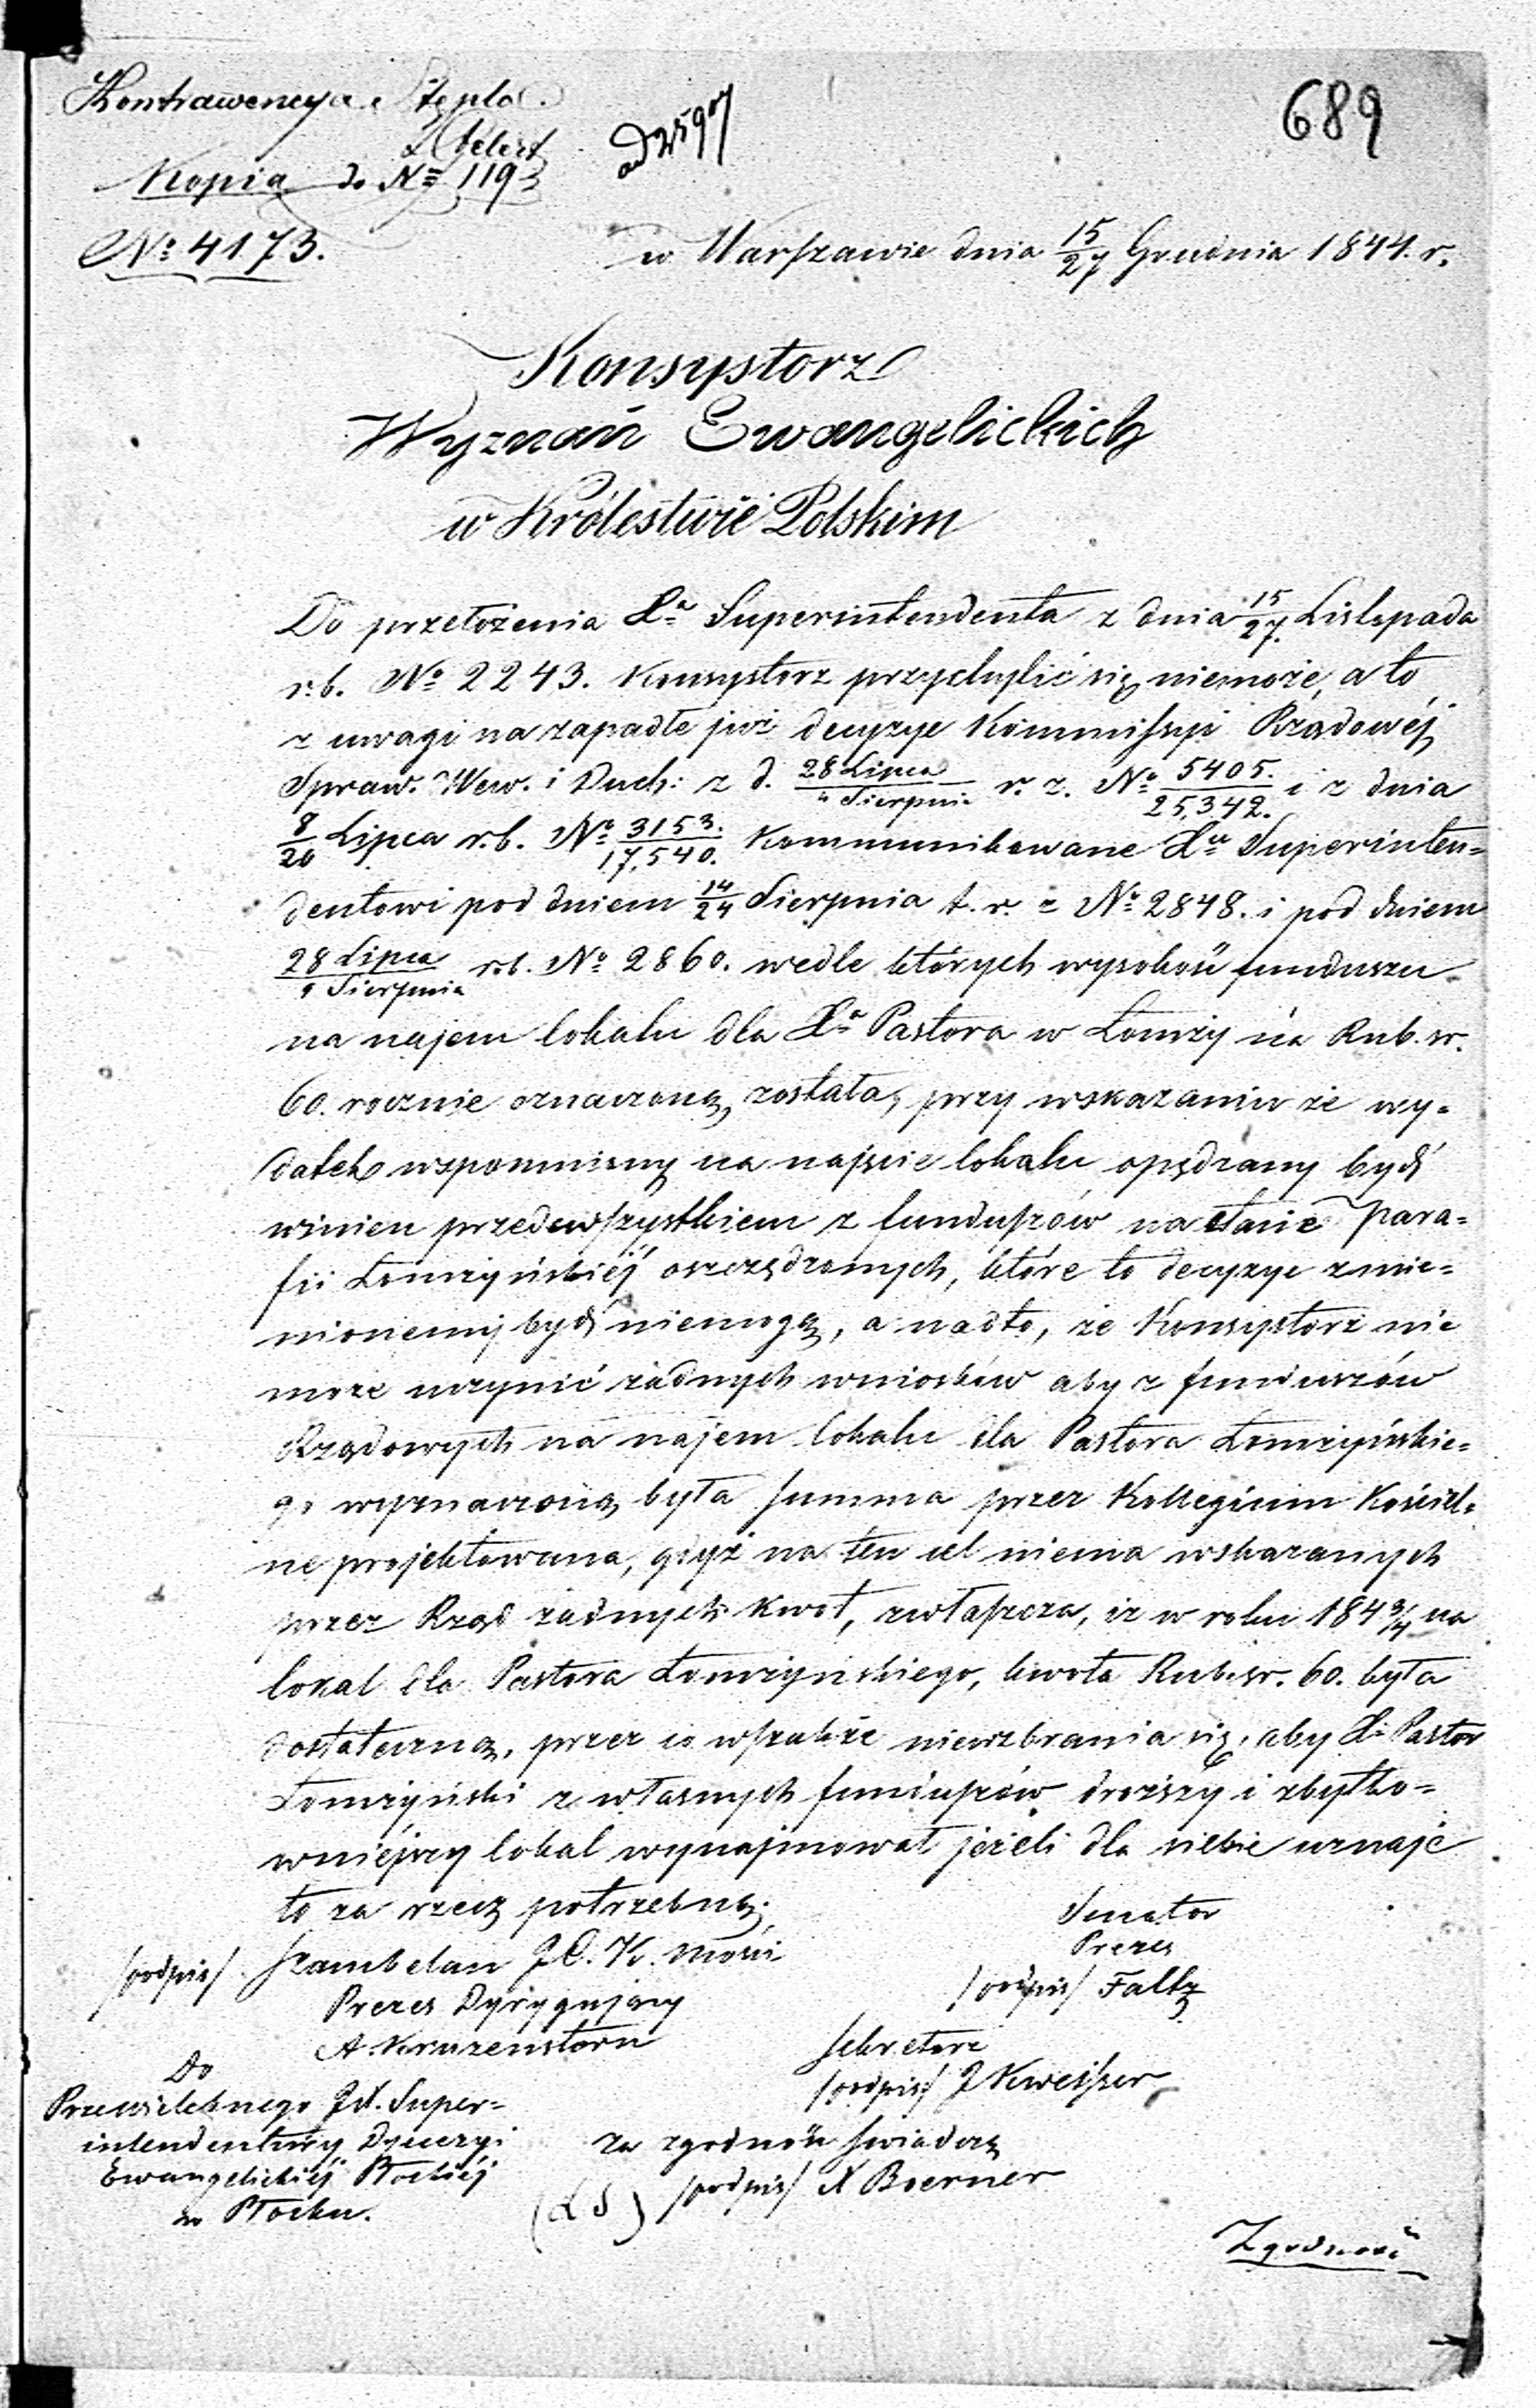 Kontrawencya Stępla.
Kopia do № 1193
ad 2590
689
№ 4173.
w Warszawie dnia 15/27 Grudnia 1844. r.
Konsystorz
Wyznań Ewangelickich
w Królestwie Polskim
Do przełożenia Xa Superintendenta z dnia 15/27. Listopada
r. b. № 2243. Konsystorz przychylić się niemoże, a to
z uwagi na zapadłe już decyzye Kommissyi Rządowéj
Spraw. Wew. i Duch: z d. 28 Lipca/Sierpnia r. z. № 5405./25,342. i z dnia
8/20 Lipca r. b. № 3153./17,540. Kommunikowane Xu Superinten=
dentowi pod dniem 14/24 Sierpnia t. r. z № 2848. i pod dniem
28 Lipca/9 Sierpnia r. b. № 2860. wedle których wysokość funduszu
na najem lokalu dla Xa Pastora w Łomży na Rub. sr.
60. rocznie oznaczoną została, przy wskazaniu że wy=
datek wspomniony na najęcie lokalu opędzany bydź
winien przedewszystkiem z funduszów na etacie para=
fii Łomżyńskiéj oszczędzonych, które to decyzye zmie=
nionemi bydź niemogą, a nadto, że Konsystorz nie
może uczynić żadnych wniosków aby z funduszów
Rządowych na najem lokalu dla Pastora Łomżyńskie=
go wyznaczoną była summa przez Kollegium Kościel=
ne projektowana, gdyż na ten cel niema wskazanych
przez Rząd żadnych kwot, zwłaszcza, iż w roku 184 3/4 na
lokal dla Pastora Łomżyńskiego, kwota Rub. sr. 60. była
dostateczną, przez co wszakże niewzbrania się, aby X. Pastor
Łomżyński z własnych funduszów droższy i zbytko=
wniejszy lokal wynajmował jeżeli dla siebie uznaje
to za rzecz potrzebną.
Senator
Prezes
/podpis/ Faltz
/podpis/ Szambelan J. C. K. Mości
Prezes Dyrygujący
A. Kruzenstern
Sekretarz
/podpis/ J Kweisser
Do
Przewielebnego JX. Super=
intendentury Dyecezyi
Ewangelickiéj Płockiéj
w Płocku.
Za zgodność świadczę
(LS) /podpis/ X Boerner
Zgodność